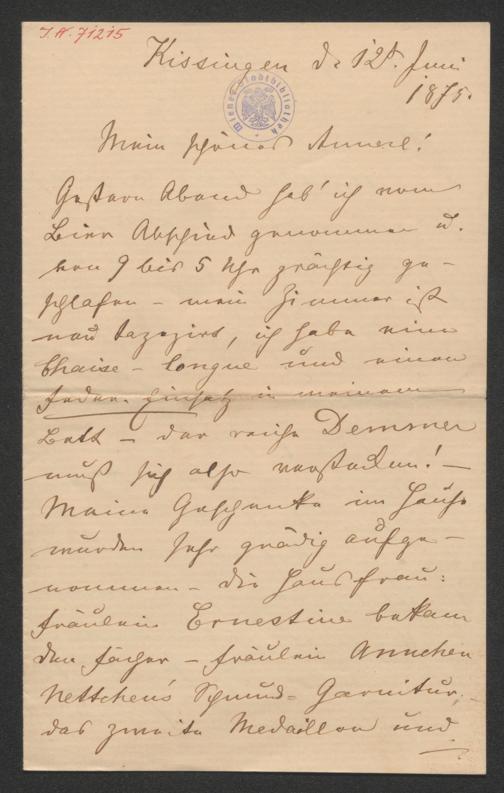 I.N. 71215
Kissingen d. 12t. Juni
1875.
Wiener Stadtbibliothek
Mein schönes Annerl!
Gestern Abend hab' ich vom
Bier Abschied genommen u.
von 9 bis 5 Uhr prächtig ge-
schlafen – mein Zimmer ist
neu tapezirt, ich habe eine
Chaise-longue und einen
Feder-Einsatz in meinem
Bett – der reiche Demmer
muß sich also verstecken! –
Meine Geschenke im Hause
wurden sehr gnädig aufge-
nommen – die Hausfrau:
Fräulein Ernestine bekam
den Fächer – Fräulein Annchen
Nettchen's Schmuck-Garnitur, –
das zweite Medaillon und